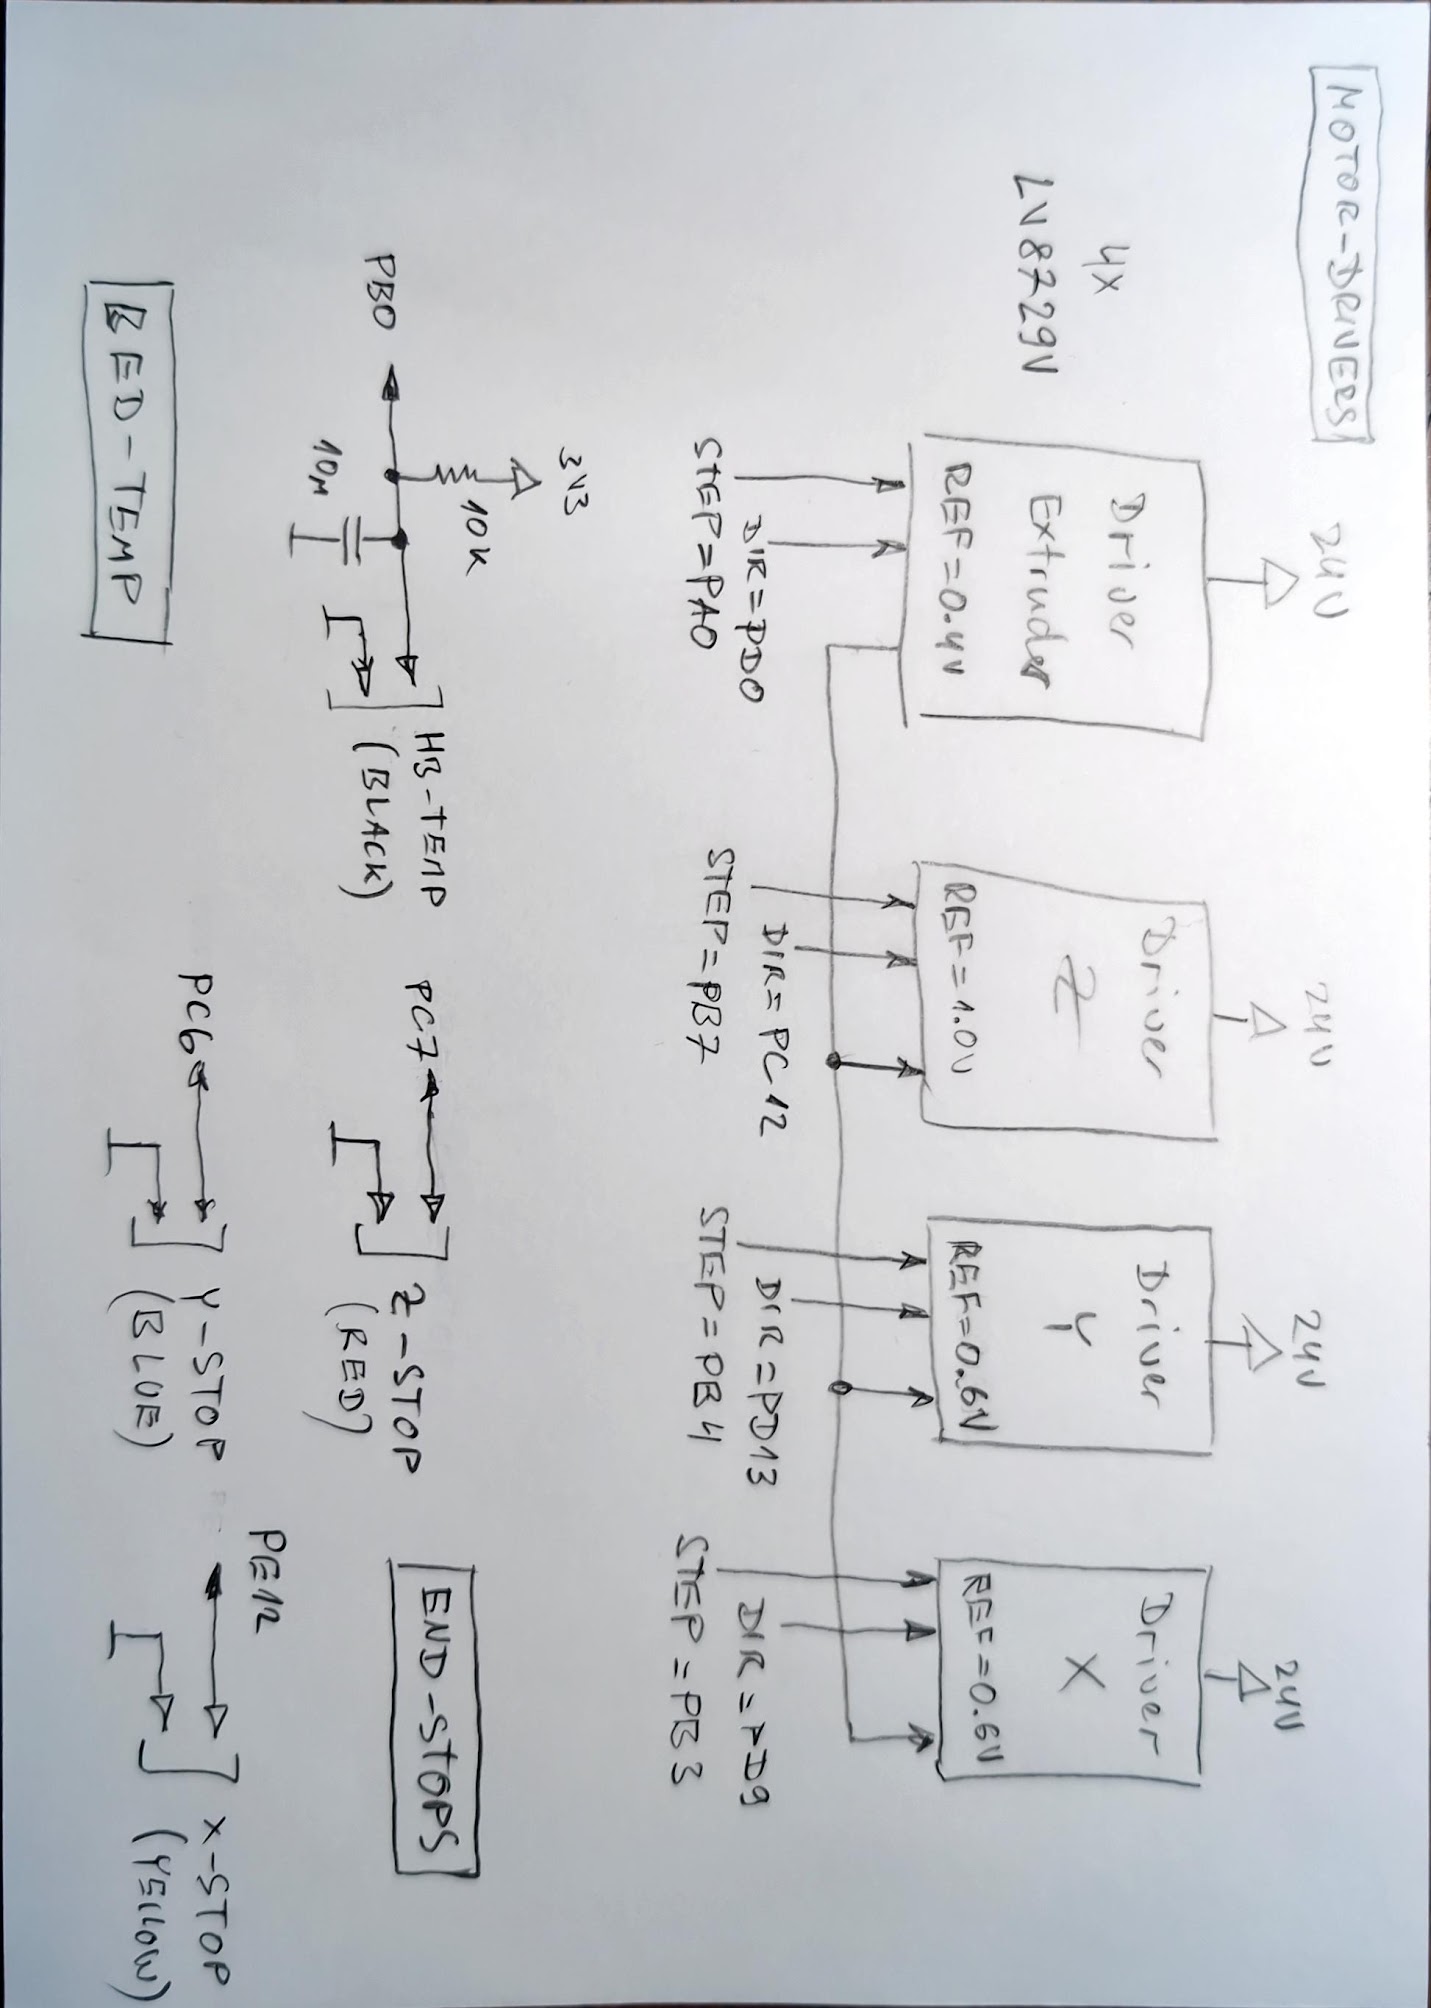 MOTOR-DRIVERS
4X
LV8729V
24V
Driver
Extruder
REF=0.4V
DIR=PD0
STEP=PA0
24V
Driver
Z
REF=1.0V
DIR=PC12
STEP=PB7
24V
Driver
Y
REF=0.6V
DIR=PD13
STEP=PB4
24V
Driver
X
REF=0.6V
DIR=PD9
STEP=PB3
3V3
10K
PB0
10µ
HB-TEMP
(BLACK)
BED-TEMP
PC7
Z-STOP
(RED)
PC6
Y-STOP
(BLUE)
END-STOPS
PE12
X-STOP
(YELLOW)